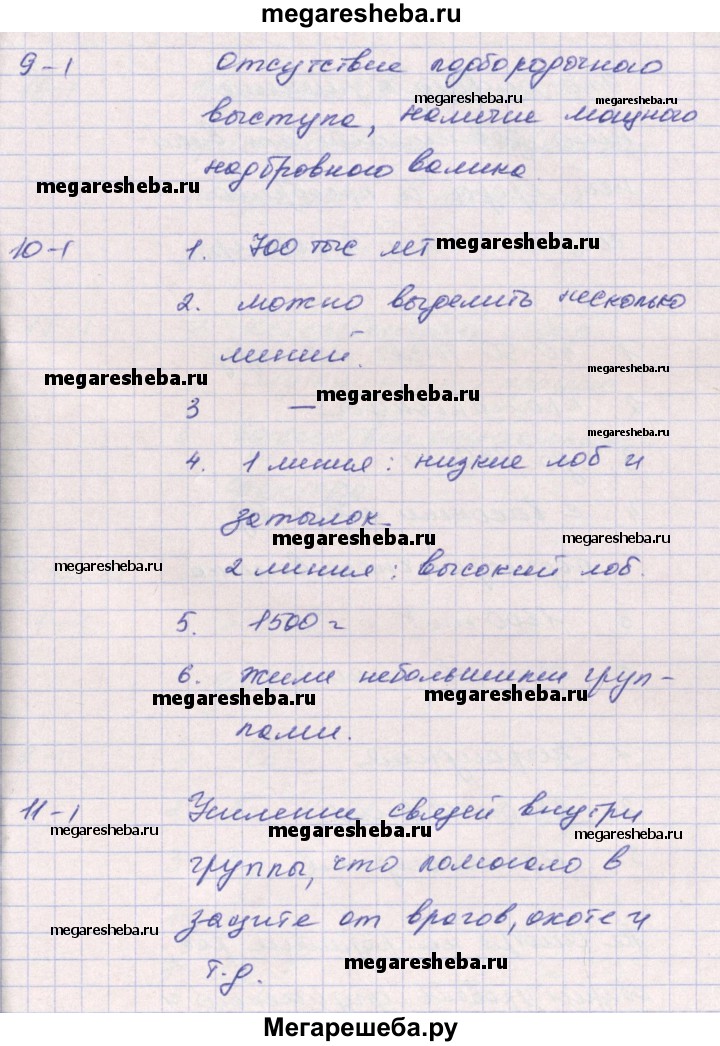 megaresheba.ru
9-1 Отсутствие подбородочного
megaresheba.ru megaresheba.ru
выступа, наличие мощного
надбровного валика
megaresheba.ru
10-1 1. 700 тыс лет megaresheba.ru
2. можно выделить несколько
линий.
megaresheba.ru megaresheba.ru
3 — megaresheba.ru
megaresheba.ru
4. 1 линия: низкие лоб и
затылок
megaresheba.ru
megaresheba.ru 2 линия: высокий лоб.
5. 1500 г
megaresheba.ru
6. жили небольшими груп-
megaresheba.ru megaresheba.ru
пами.
11-1 Усиление связей внутри
megaresheba.ru megaresheba.ru megaresheba.ru
группы, что помогало в
защите от врагов, охоте и
megaresheba.ru
т.д. megaresheba.ru
Мегарешеба.ру